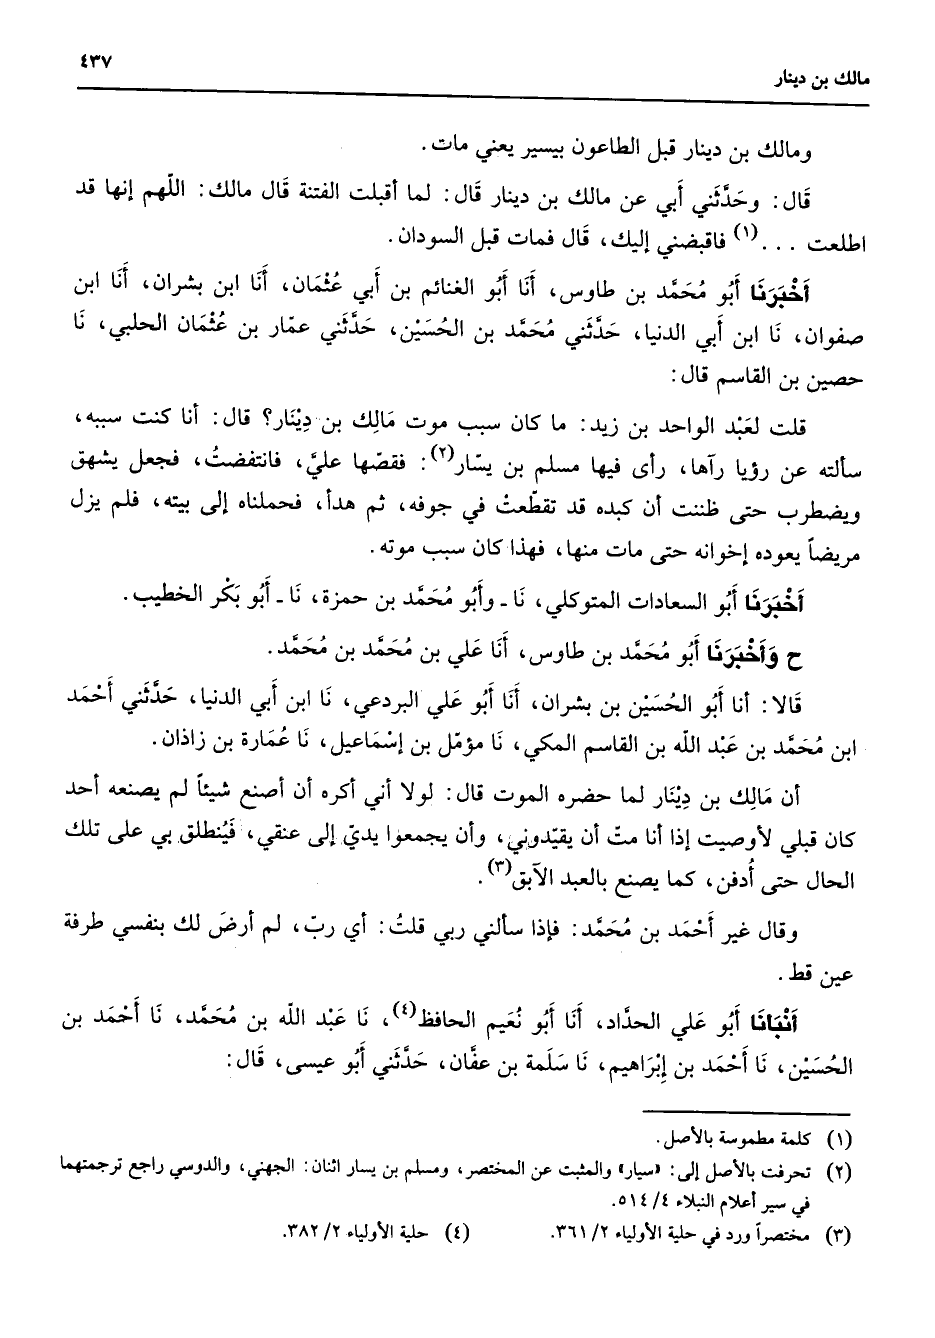 مالك بن دينار
٤٣٧
ومالك بن دينار قبل الطاعون بيسير يعني مات.
قَال: وحَدَّثَني أَبي عن مالك بن دينار قَال: لما أقبلت الفتنة قَال مالك: اللّهم إنها قد
اطلعت . . .(١) فاقبضني إليك، قَال فمات قبل السودان.
أَخْبَرَنَا أَبُو مُحَمَّد بن طاوس، أَنَا أَبُو الغنائم بن أَبي عُثْمَان، أَنَا ابن بشران، أَنَا ابن
صفوان، نَا ابن أَبي الدنيا، حَدَّثَني مُحَمَّد بن الحُسَيْن، حَدَّثَني عمّار بن عُثْمَان الحلبي، نَا
حصين بن القاسم قَال:
قلت لعَبْد الواحد بن زيد: ما كان سبب موت مَالِك بن دِيْنَار؟ قال: أنا كنت سببه،
سألته عن رؤيا رآها، رأى فيها مسلم بن يسّار(٢): فقصّها عليَّ، فانتفضتُ، فجعل يشهق
ويضطرب حتى ظننت أن كبده قد تقطّعتْ في جوفه، ثم هدأ، فحملناه إلى بيته، فلم يزل
مريضاً يعوده إخوانه حتى مات منها، فهذا كان سبب موته.
أَخْبَرَنَا أَبُو السعادات المتوكلي، نَا ـ وأَبُو مُحَمَّد بن حمزة، نَا ـ أَبُو بَكْر الخطيب.
ح وَأَخْبَرَنَا أَبُو مُحَمَّد بن طاوس، أَنَا عَلي بن مُحَمَّد بن مُحَمَّد.
قَالا: أنا أَبُو الحُسَيْن بن بشران، أَنَا أَبُو عَلي البردعي، نَا ابن أَبي الدنيا، حَدَّثَني أَحْمَد
ابن مُحَمَّد بن عَبْد الله بن القاسم المكي، نَا مؤمّل بن إسْمَاعيل، نَا عُمَارة بن زاذان.
أن مَالِك بن دِيْنَار لما حضره الموت قال: لولا أني أكره أن أصنع شيئاً لم يصنعه أحد
كان قبلي لأوصيت إذا أنا متّ أن يقيّدوني، وأن يجمعوا يديّ إلى عنقي، فَيُنطلق بي على تلك
الحال حتى أُدفن، كما يصنع بالعبد الآبق(٣).
وقال غير أَحْمَد بن مُحَمَّد: فإذا سألني ربي قلتُ: أي ربّ، لم أرضَ لك بنفسي طرفة
عين قط.
أَنْبَانَا أَبُو عَلي الحدَّاد، أَنَا أَبُو نُعَيم الحافظ(٤)، نَا عَبْد الله بن مُحَمَّد، نَا أَحْمَد بن
الحُسَيْن، نَا أَحْمَد بن إِبْرَاهيم، نَا سَلَمة بن عفَّان، حَدَّثَني أَبُو عيسى، قَال:
(١) كلمة مطموسة بالأصل.
(٢) تحرفت بالأصل إلى: «سيار» والمثبت عن المختصر، ومسلم بن يسار اثنان: الجهني، والدوسي راجع ترجمتهما
في سير أعلام النبلاء ٤/ ٥١٤.
(٣) مختصراً ورد في حلية الأولياء ٢/ ٣٦١. (٤) حلية الأولياء ٢/ ٣٨٢.